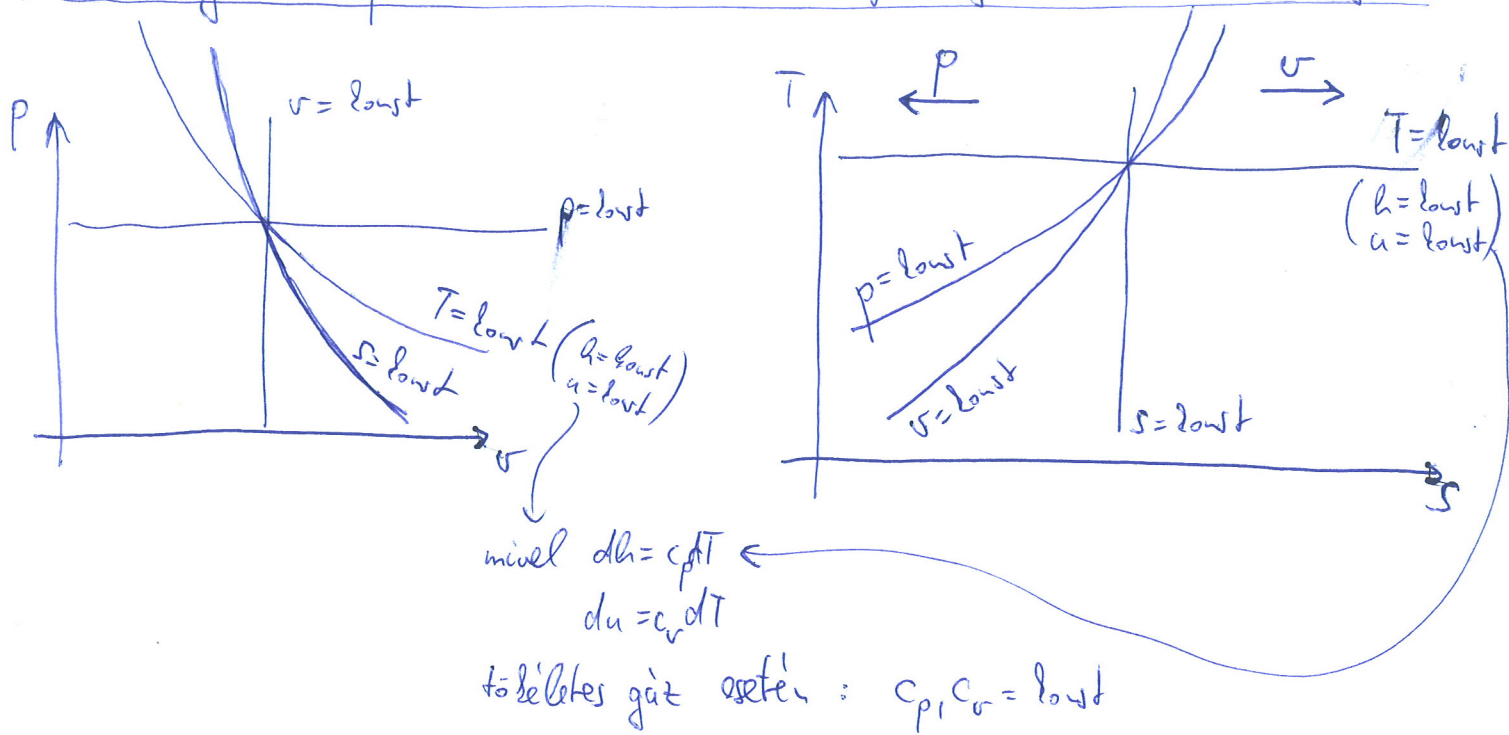 P
v = konst
p = konst
T = konst (h = konst
u = konst)
s = konst
v
T
p
v
T = konst
(h = konst
u = konst)
p = konst
v = konst
s = konst
s
mivel dh = c_p dT
du = c_v dT
tökéletes gáz esetén : c_p, c_v = konst